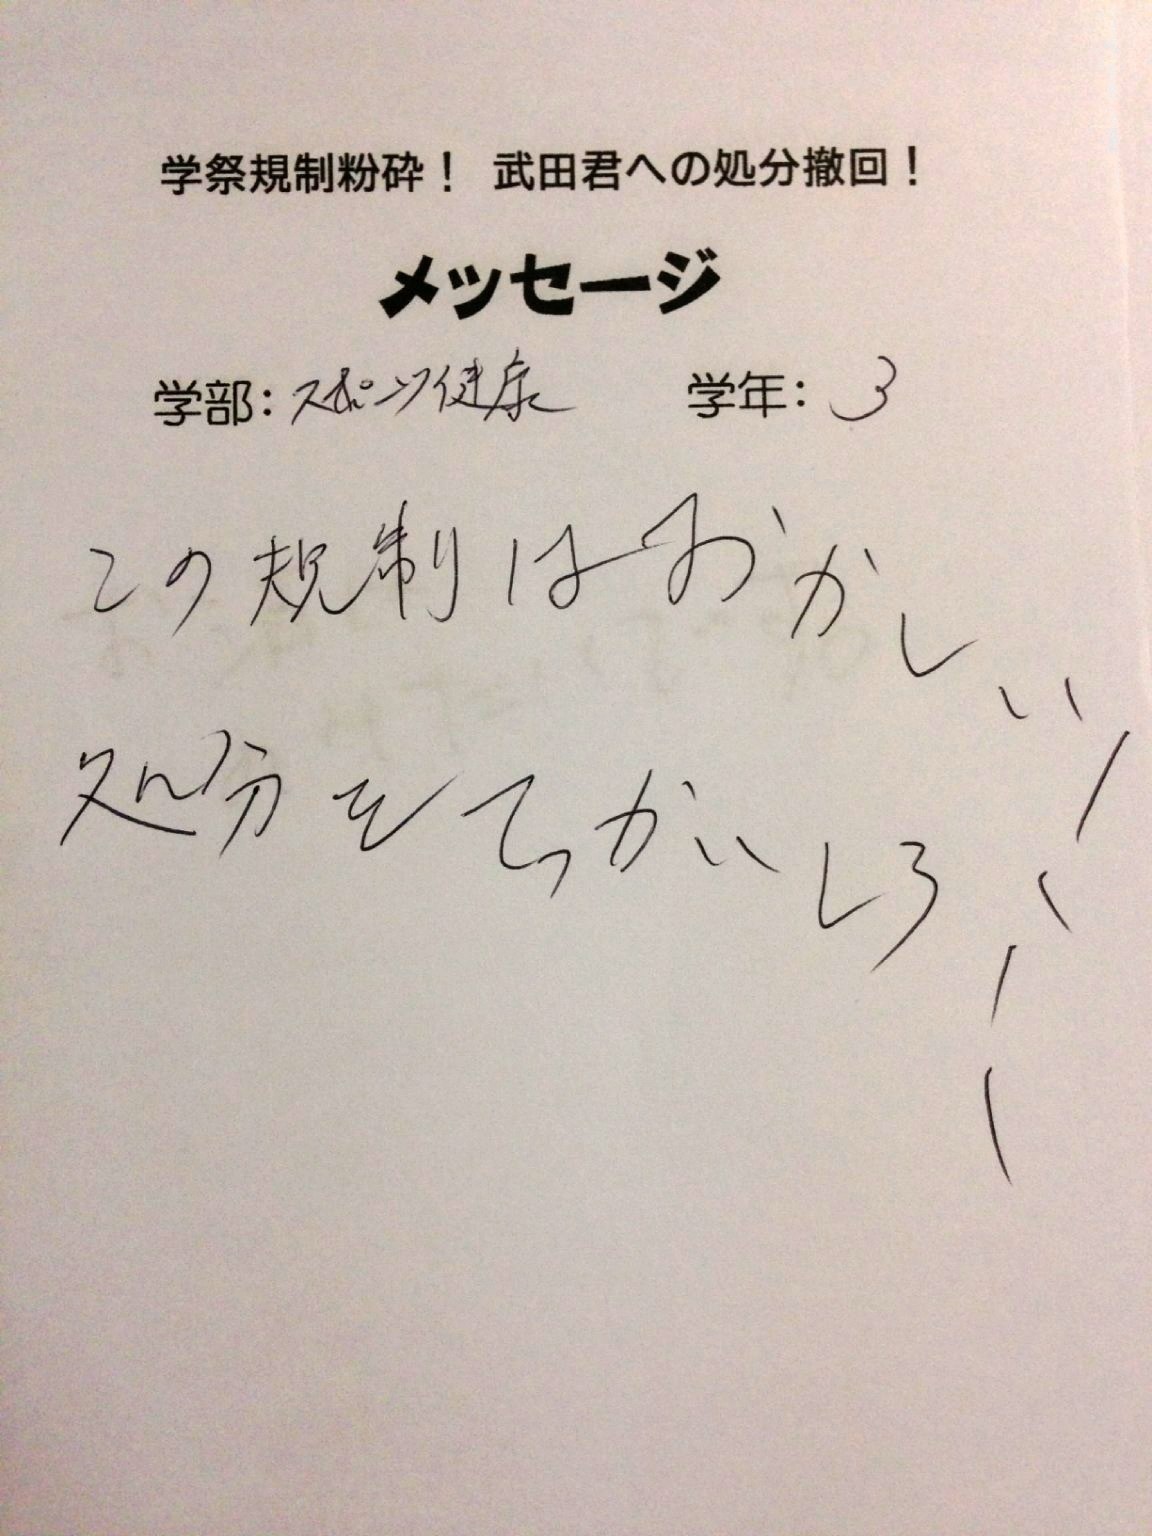 学祭規制粉砕！ 武田君への処分撤回！
メッセージ
学部：スポーツ健康 学年：3
この規制はおかしい！
処分をてっかいしろ！！